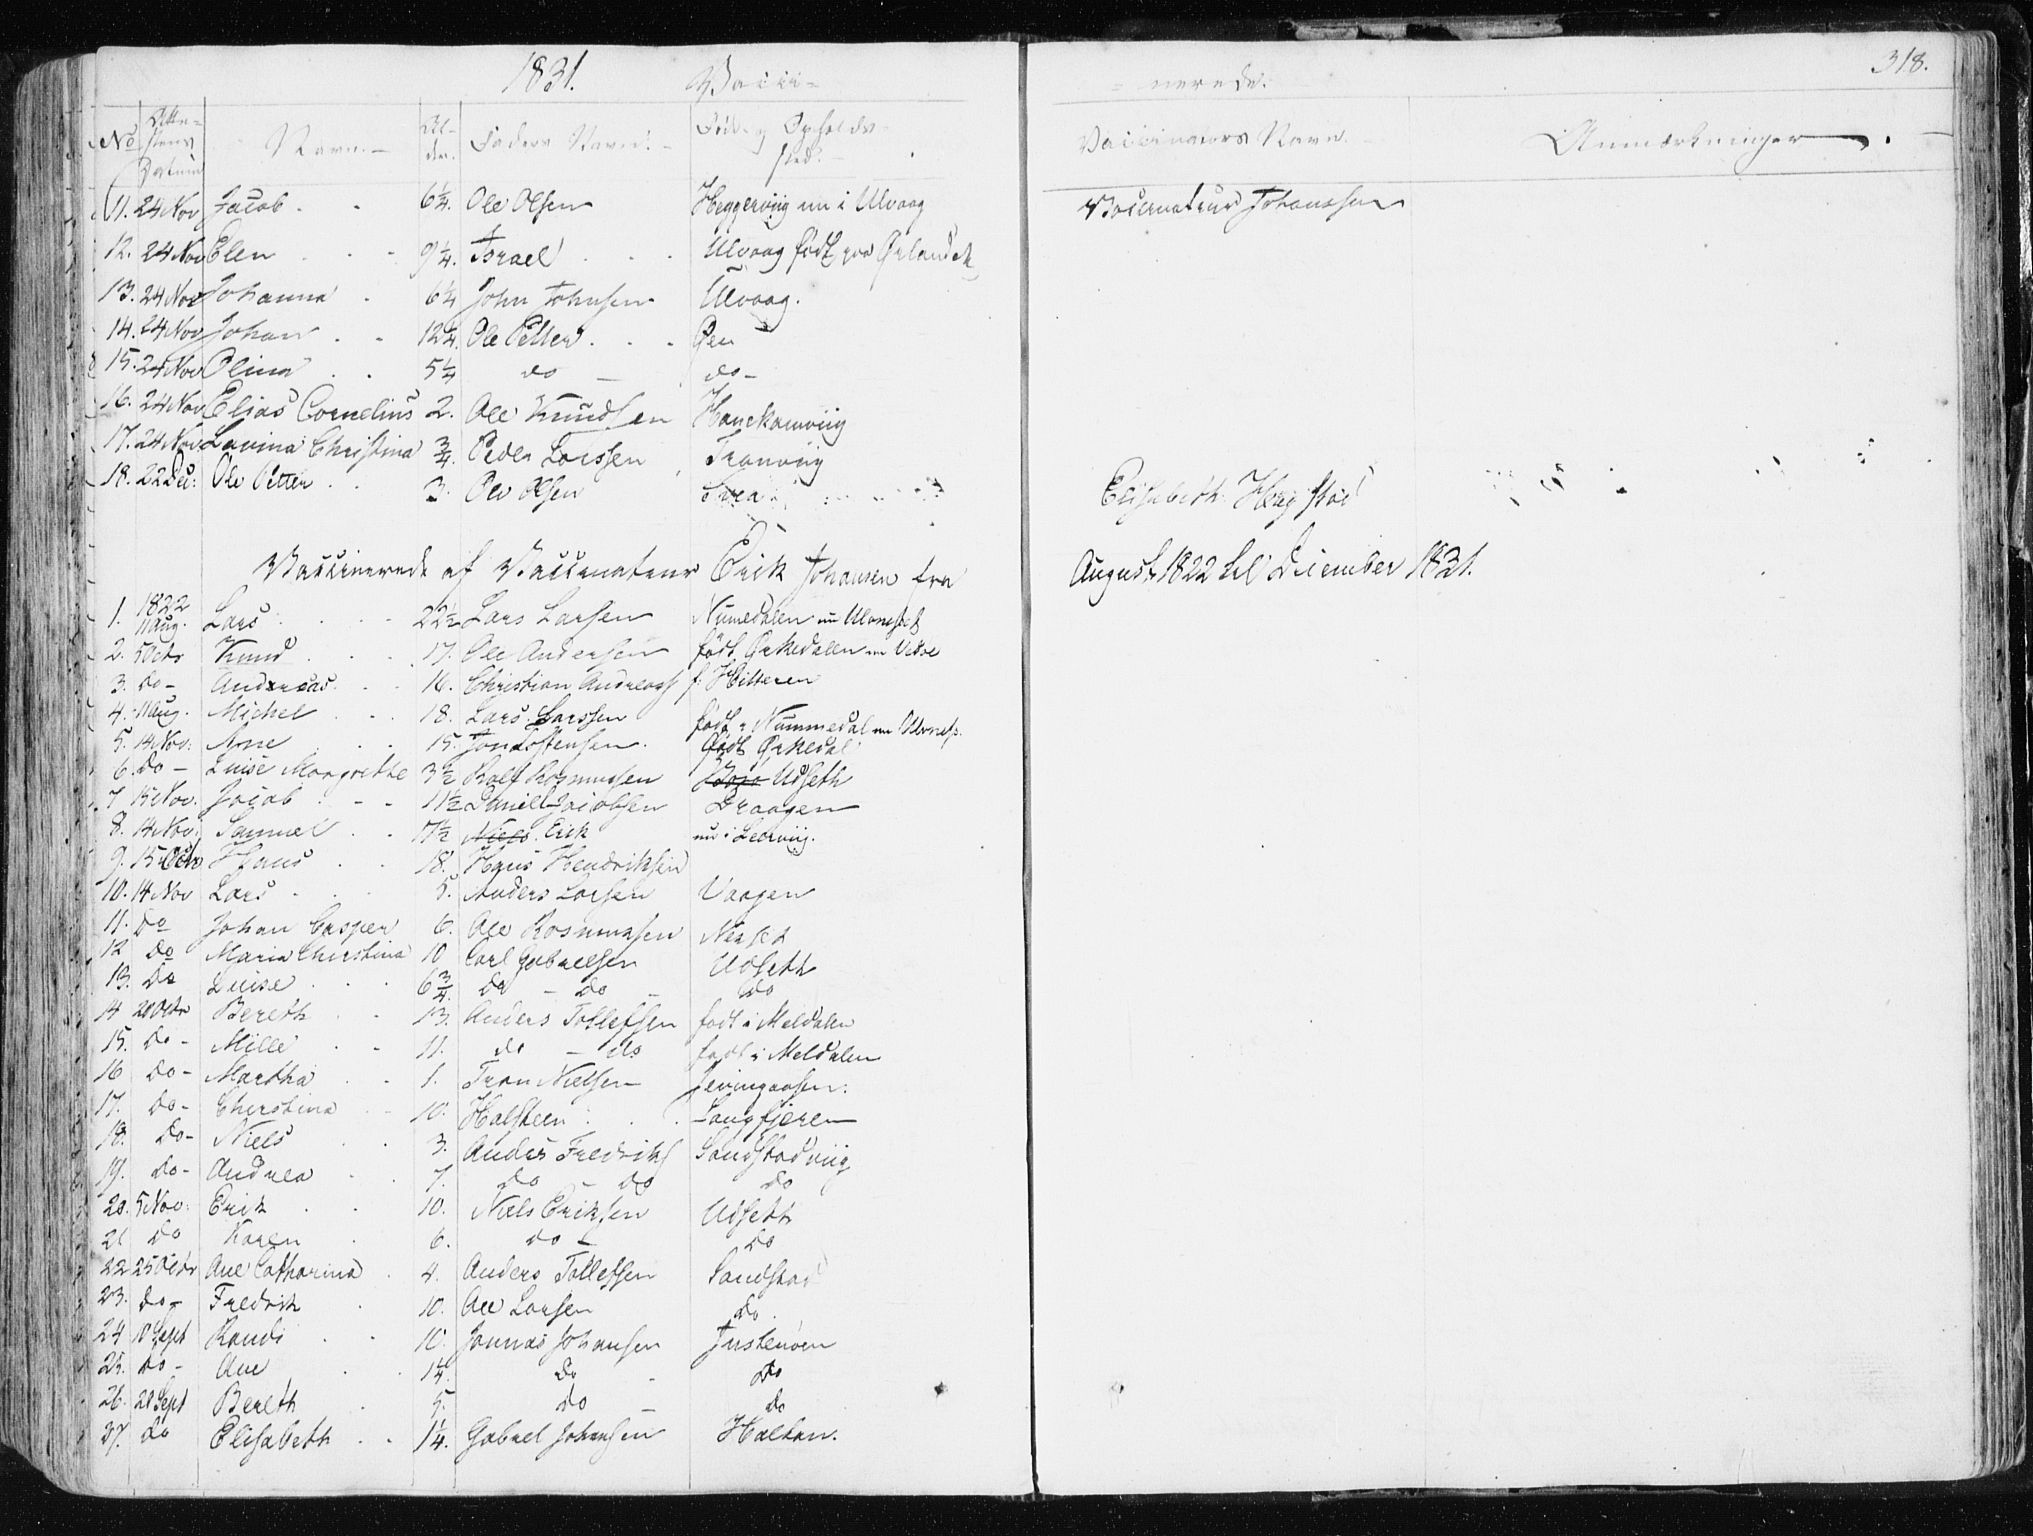 1831. Vacci= =nerede. 318.
No Atte= stens Datum Navn. Al- der. Faders Navn. Føde og Opholds- sted. Vaccinators Navn. Anmærkninger
11. 24 Nov Jacob 6¼. Ole Olsen Heggerviig nu i Ulvaag Vaccinateur Johanssen
12. 24 Nov Elen 9¼. Israel Ulvaag født paa Ørlandet
13. 24 Nov Johanna 6¼ John Johnsen Ulvaag.
14. 24 Nov Johan 12¼. Ole Petter Øen
15. 24 Nov Olina 5¼ do do
16. 24 Nov Elias Cornelius 2. Ole Knudsen
17. 24 Nov. Lavina Christina ¾. Peder Larssen Tranviig
18. 22 Dec: Ole Petter 3. Ole Olsen Elisabeth
Vaccinerede af Vaccinateur Erik Johansen fra August 1822 til December 1831.
1. 1822 11 Aug. Lars 22½ Lars Larsen Numedalen nu
2. 5 Octr Knud 17. Ole Andersen født Ørkedalen nu
3. do Andreas 16. Christian Andreass f. Hitteren
4. 11 Aug. Michel 18. Lars Larssen født i Nummedal nu
5. 14 Nov: Arne 15. født Ørkedal
6. do Luise Margrethe 3½ Rolf Rasmussen Udseth
7 15 Nov. Jacob 11½ Daniel Jacobsen Draagen
8. 14 Nov: Samuel 17½ Niels. Erik nu i Leerviig.
9. 15 Octr Hans 18. Hans Hendriksen
10. 14 Nov Lars 5. Anders Larsen Vaagen
11. Do Johan Casper 6. Ole Rasmussen
12 Do Maria Christina 10 Carl Gabrielsen Udseth
13. Do Luise 6¾. do do do
14 20 Octr Bereth 13. Anders Tollefsen født i Meldalen
15. Do Mille 11. do do født i Meldalen
16 Do Martha 1. Tron Nielsen
17. Do Christina 10. Halsteen Langfjeren
18. Do Niels 3. Anders Fredriks Sandstadviig
19. Do Andrea 7. do do do
20. 5 Nov: Erik 10. Niels Eriksen Udseth
21 Do Karen 6. do do
22 25 Octr Ane Catharina 4. Anders Tollefsen Sandstad
23. Do Fredrik 10. Ole Larsen do
24 18 Sept Randi 10. Jonnas Johansen Jystenøen
25. do Ane 14. Do Do
26. 28 Sept Bereth 5. do do
27. do Elisabeth 1¼. Gabriel Johansen Haltan.